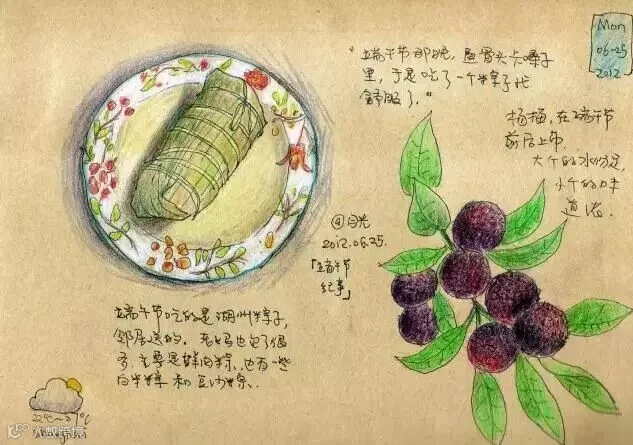 Mon
06-25
2012
"端午节那晚,鱼骨头卡嗓子
里,于是吃了一个粽子才
舒服了。"
杨梅,在端午节
前后上市.
大个的水份足,
小个的味
道浓.
@月光
2012.06.25.
「端午节
纪事」
端午节吃的是湖州粽子,
邻居送的. 老妈也包了很
多,主要是鲜肉粽.也有一些
白米粽和豆沙粽.
22℃~27℃
大数跨境